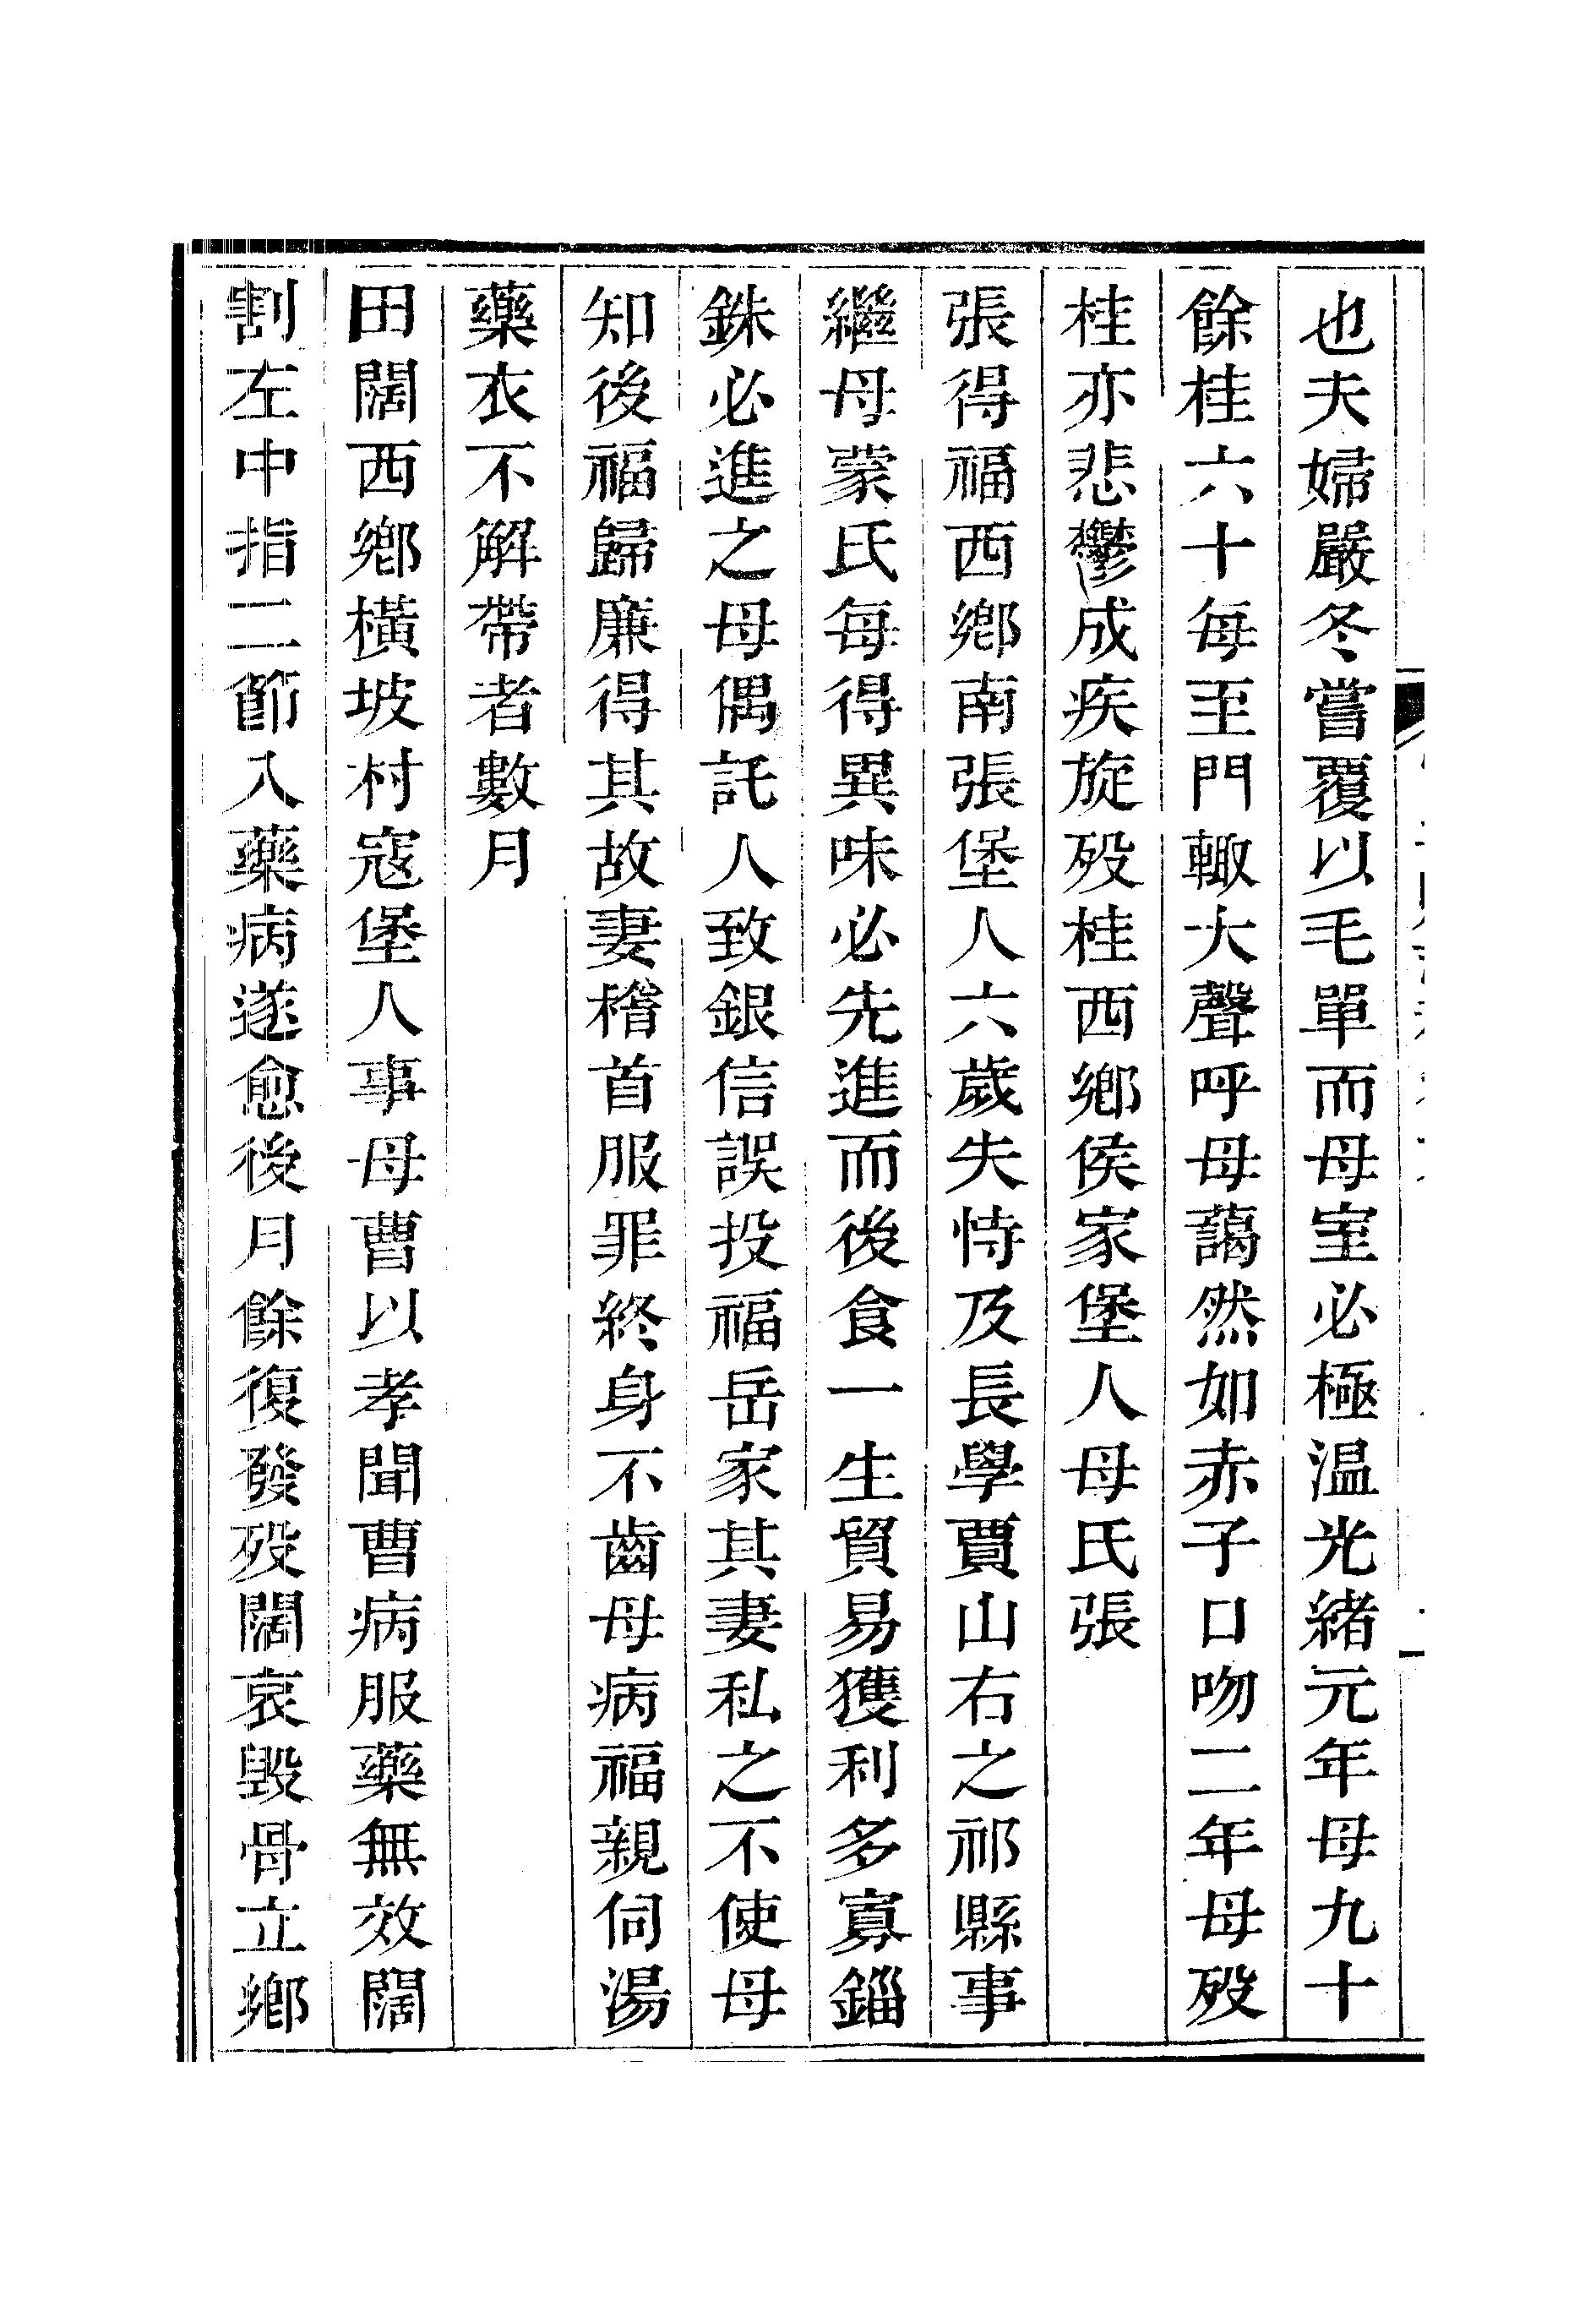 也夫婦嚴冬嘗覆以毛單而母室必極温光緒元年母九十
餘桂六十每至門輙大聲呼母藹然如赤子口吻二年母殁
桂亦悲鬱成疾旋殁桂西鄉侯家堡人母氏張
張得福西鄉南張堡人六歲失恃及長學賈山右之祁縣事
繼母蒙氏每得異味必先進而後食一生貿易獲利多寡錙
銖必進之母偶託人致銀信誤投福岳家其妻私之不使母
知後福歸廉得其故妻稽首服罪終身不齒母病福親伺湯
藥衣不解帶者數月
田闊西鄉橫坡村寇堡人事母曹以孝聞曹病服藥無效闊
割左中指二節入藥病遂愈後月餘復發殁闊哀毀骨立鄉